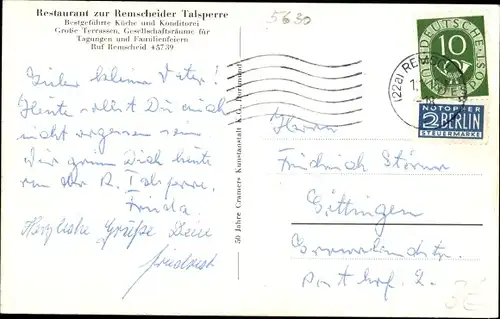 Restaurant zur Remscheider Talsperre
Bestgeführte Küche und Konditorei
Große Terrassen, Gesellschaftsräume für
Tagungen und Familienfeiern
Ruf Remscheid 45739
5630
lieber kleiner Vater!
Heute sollst Du auch
nicht vergessen sein
Wir grüßen Dich heute
von der R. Talsperre.
Frieda
Herzliche Grüße Dein
Friedrich
50 Jahre Cramers Kunstanstalt K.G. Dortmund
DEUTSCHE BUNDESPOST
10
(22a) REMSCHEID
NOTOPFER
2 BERLIN
STEUERMARKE
Herrn
Friedrich Störmer
Göttingen